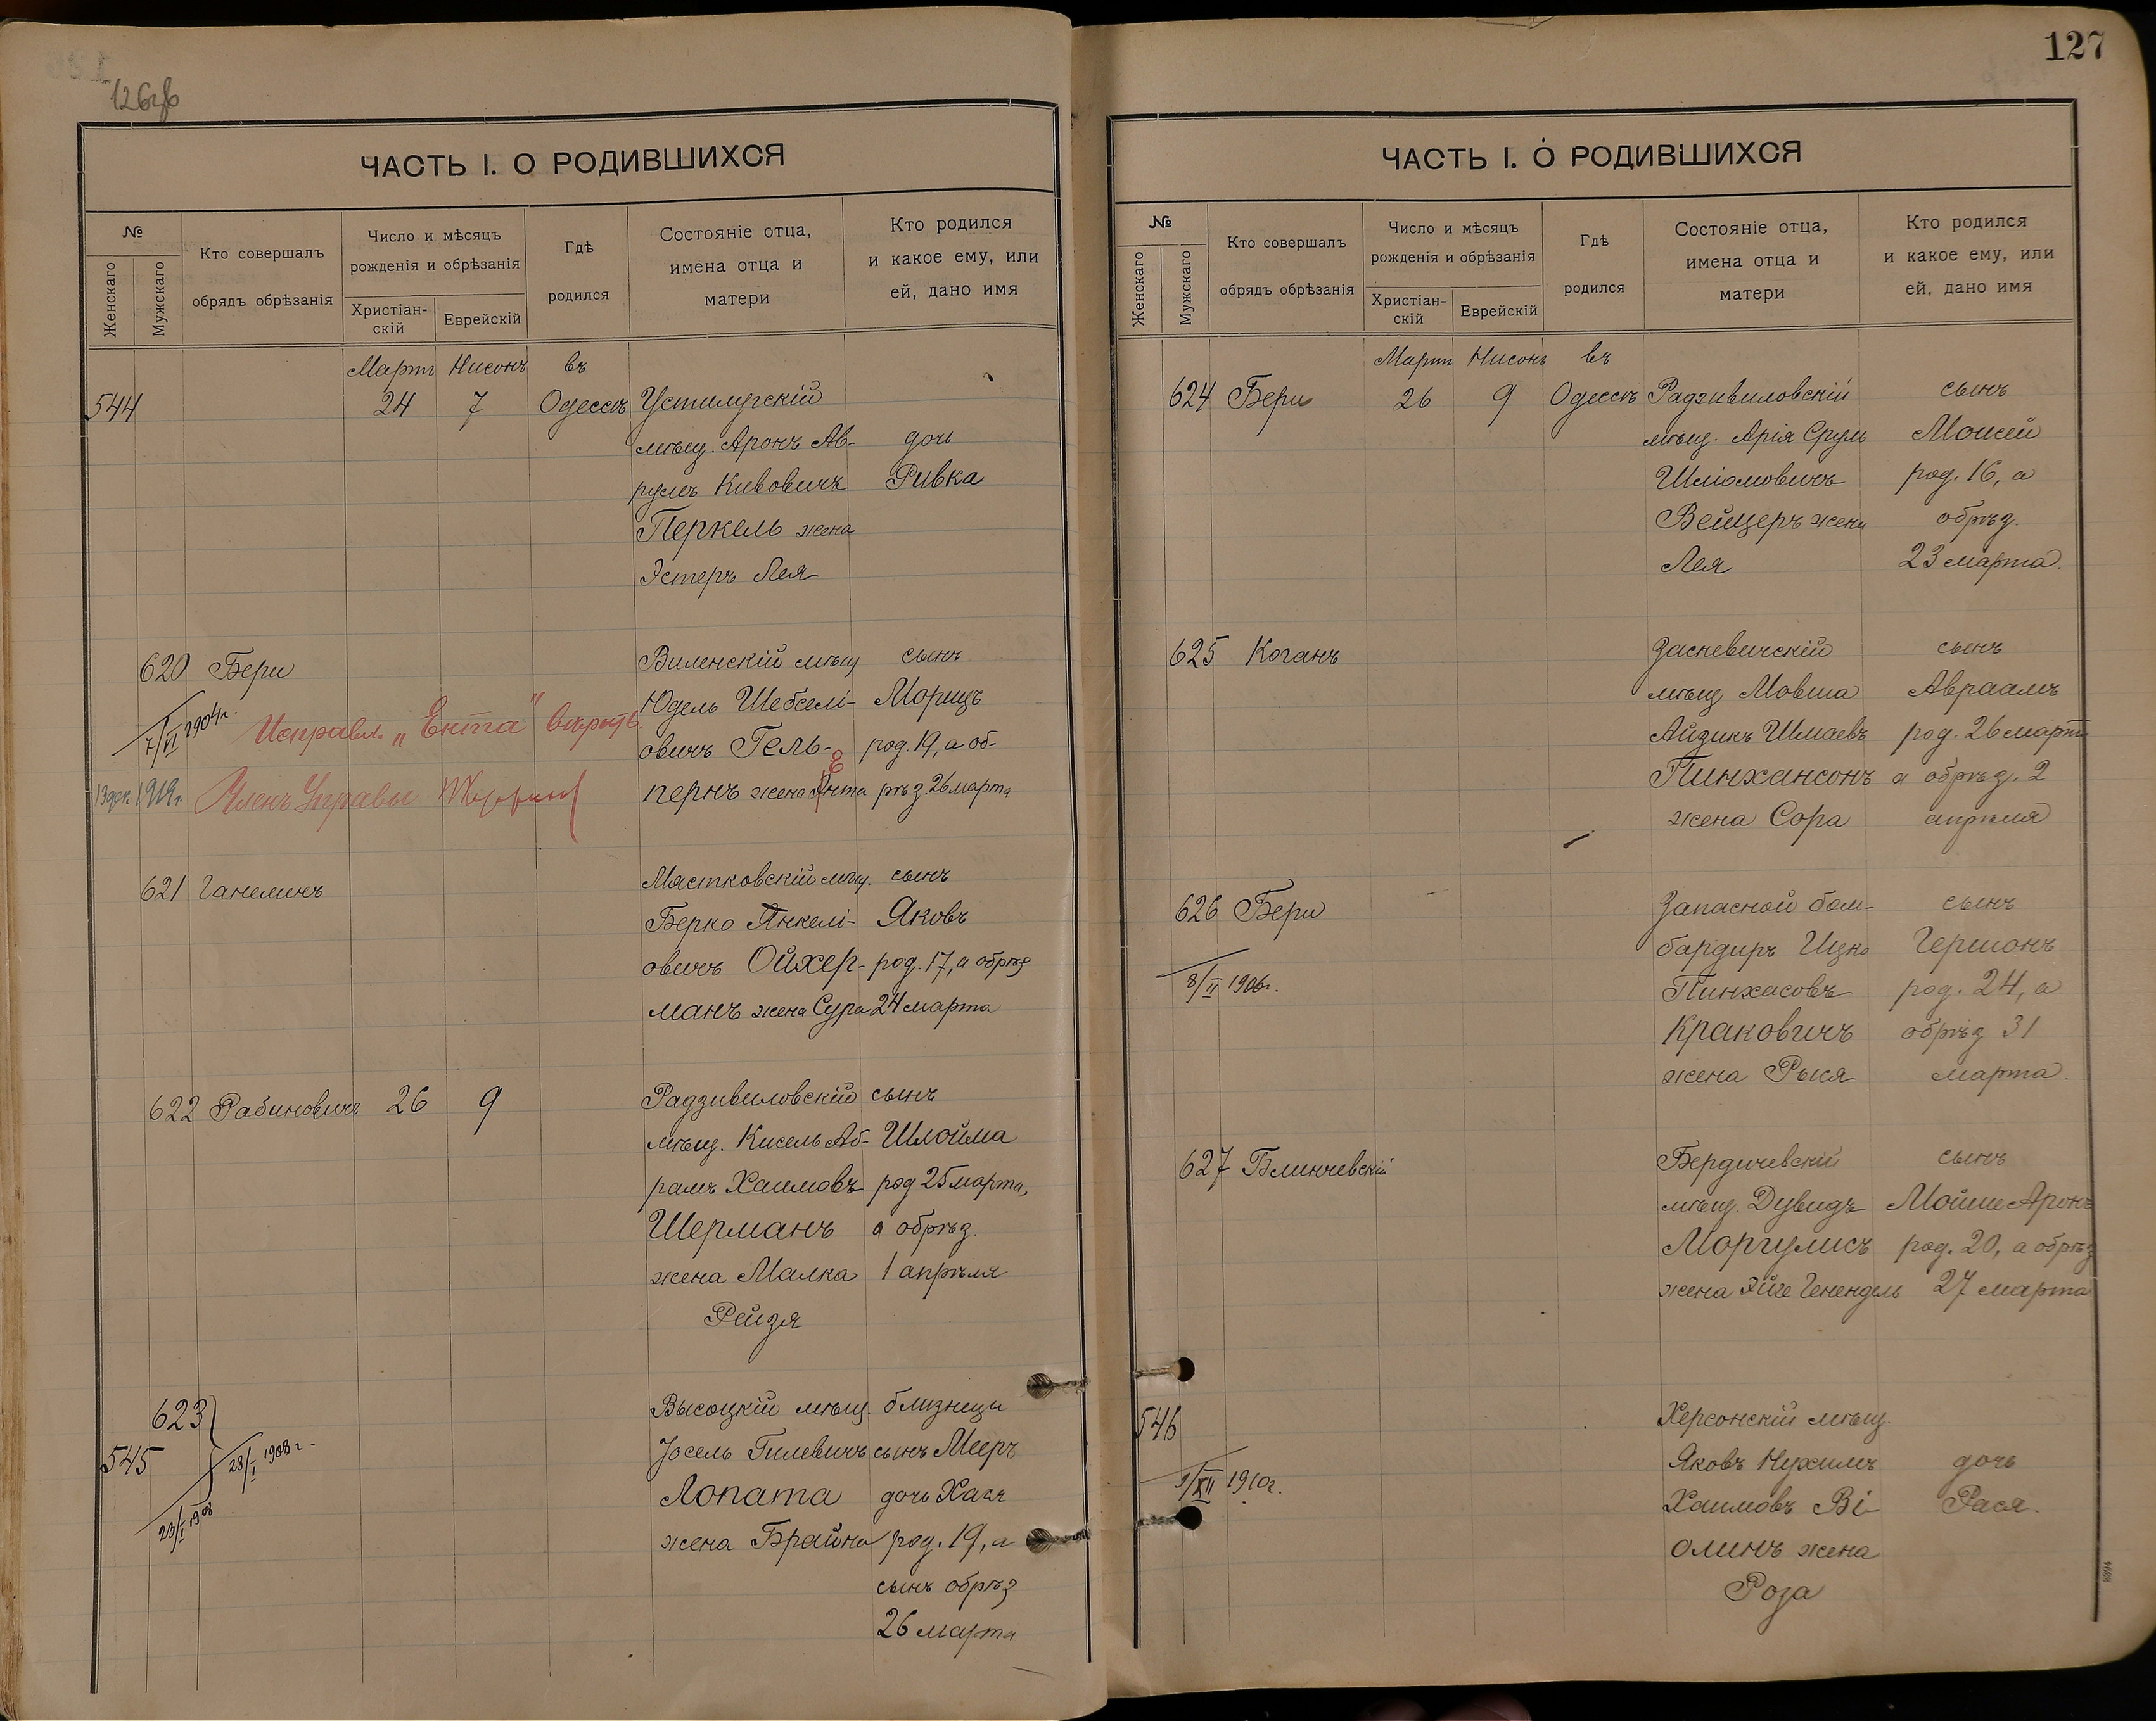 126об
ЧАСТЬ I. О РОДИВШИХСЯ
№
Женскаго
Мужскаго
Кто совершалъ
обрядъ обрѣзанія
Число и мѣсяцъ
рожденія и обрѣзанія
Христіан-
скій
Еврейскій
Гдѣ
родился
Состояніе отца,
имена отца и
матери
Кто родился
и какое ему, или
ей, дано имя
Мартъ Нисонъ въ
544 24 7 Одессѣ Устилугскій
мѣщ. Аронъ Ав- дочь
румъ Кивовичъ Ривка
Перкель жена
Эстеръ Лея
620 Бери Виленскій мѣщ сынъ
Юдель Шебселі- Морицъ
7/VI 1904г. Исправл. „Ента" вѣрить
овичъ Гель- род. 19, а об-
пернъ жена Ента рѣз. 26 марта
13 дек. 1919г. Членъ Управы
621 Ганелинъ Мястковскій мѣщ. сынъ
Берко Янкелі- Яковъ
овичъ Ойхер- род. 17, а обрѣз
манъ жена Сура 24 марта
622 Рабиновичъ 26 9 Радзивиловскій сынъ
мѣщ. Кисель Аб- Шлойма
рамъ Хаимовъ род 25 марта,
Шерманъ а обрѣз.
жена Малка 1 апрѣля
Рейзя
623 Высоцкій мѣщ. близнецы
545 23/I 1908 г. Іосель Гилевичъ сынъ Мееръ
23/I 1908 Лопата дочь Хася
жена Брайна род. 19, а
сынъ обрѣз
26 марта
127
ЧАСТЬ I. О РОДИВШИХСЯ
№
Женскаго
Мужскаго
Кто совершалъ
обрядъ обрѣзанія
Число и мѣсяцъ
рожденія и обрѣзанія
Христіан-
скій
Еврейскій
Гдѣ
родился
Состояніе отца,
имена отца и
матери
Кто родился
и какое ему, или
ей, дано имя
Мартъ Нисонъ въ
624 Бери 26 9 Одессѣ Радзивиловскій сынъ
мѣщ. Арія Сруль Моисей
Шліомовичъ род. 16, а
Вейцеръ жена обрѣз.
Лея 23 марта.
625 Коганъ Заскевичскій сынъ
мѣщ Мовша Авраамъ
Айзикъ Шмаевъ род. 26 марта
Пинхансонъ а обрѣз. 2
жена Сора апрѣля
626 Бери Запасной бом- сынъ
бардиръ Ицко Гершонъ
8/II 1906г. Пинхасовъ род. 24, а
Краковичъ обрѣз 31
жена Рыся марта.
627 Блинчевскій Бердичевскій сынъ
мѣщ. Дувидъ Мойше Аронъ
Моргулисъ род. 20, а обрѣз
жена Эйге Генендель 27 марта
546 Херсонскій мѣщ.
Яковъ Нухимъ дочь
9/XII 1910г. Хаимовъ Ві- Рася.
олинъ жена
Роза
8394